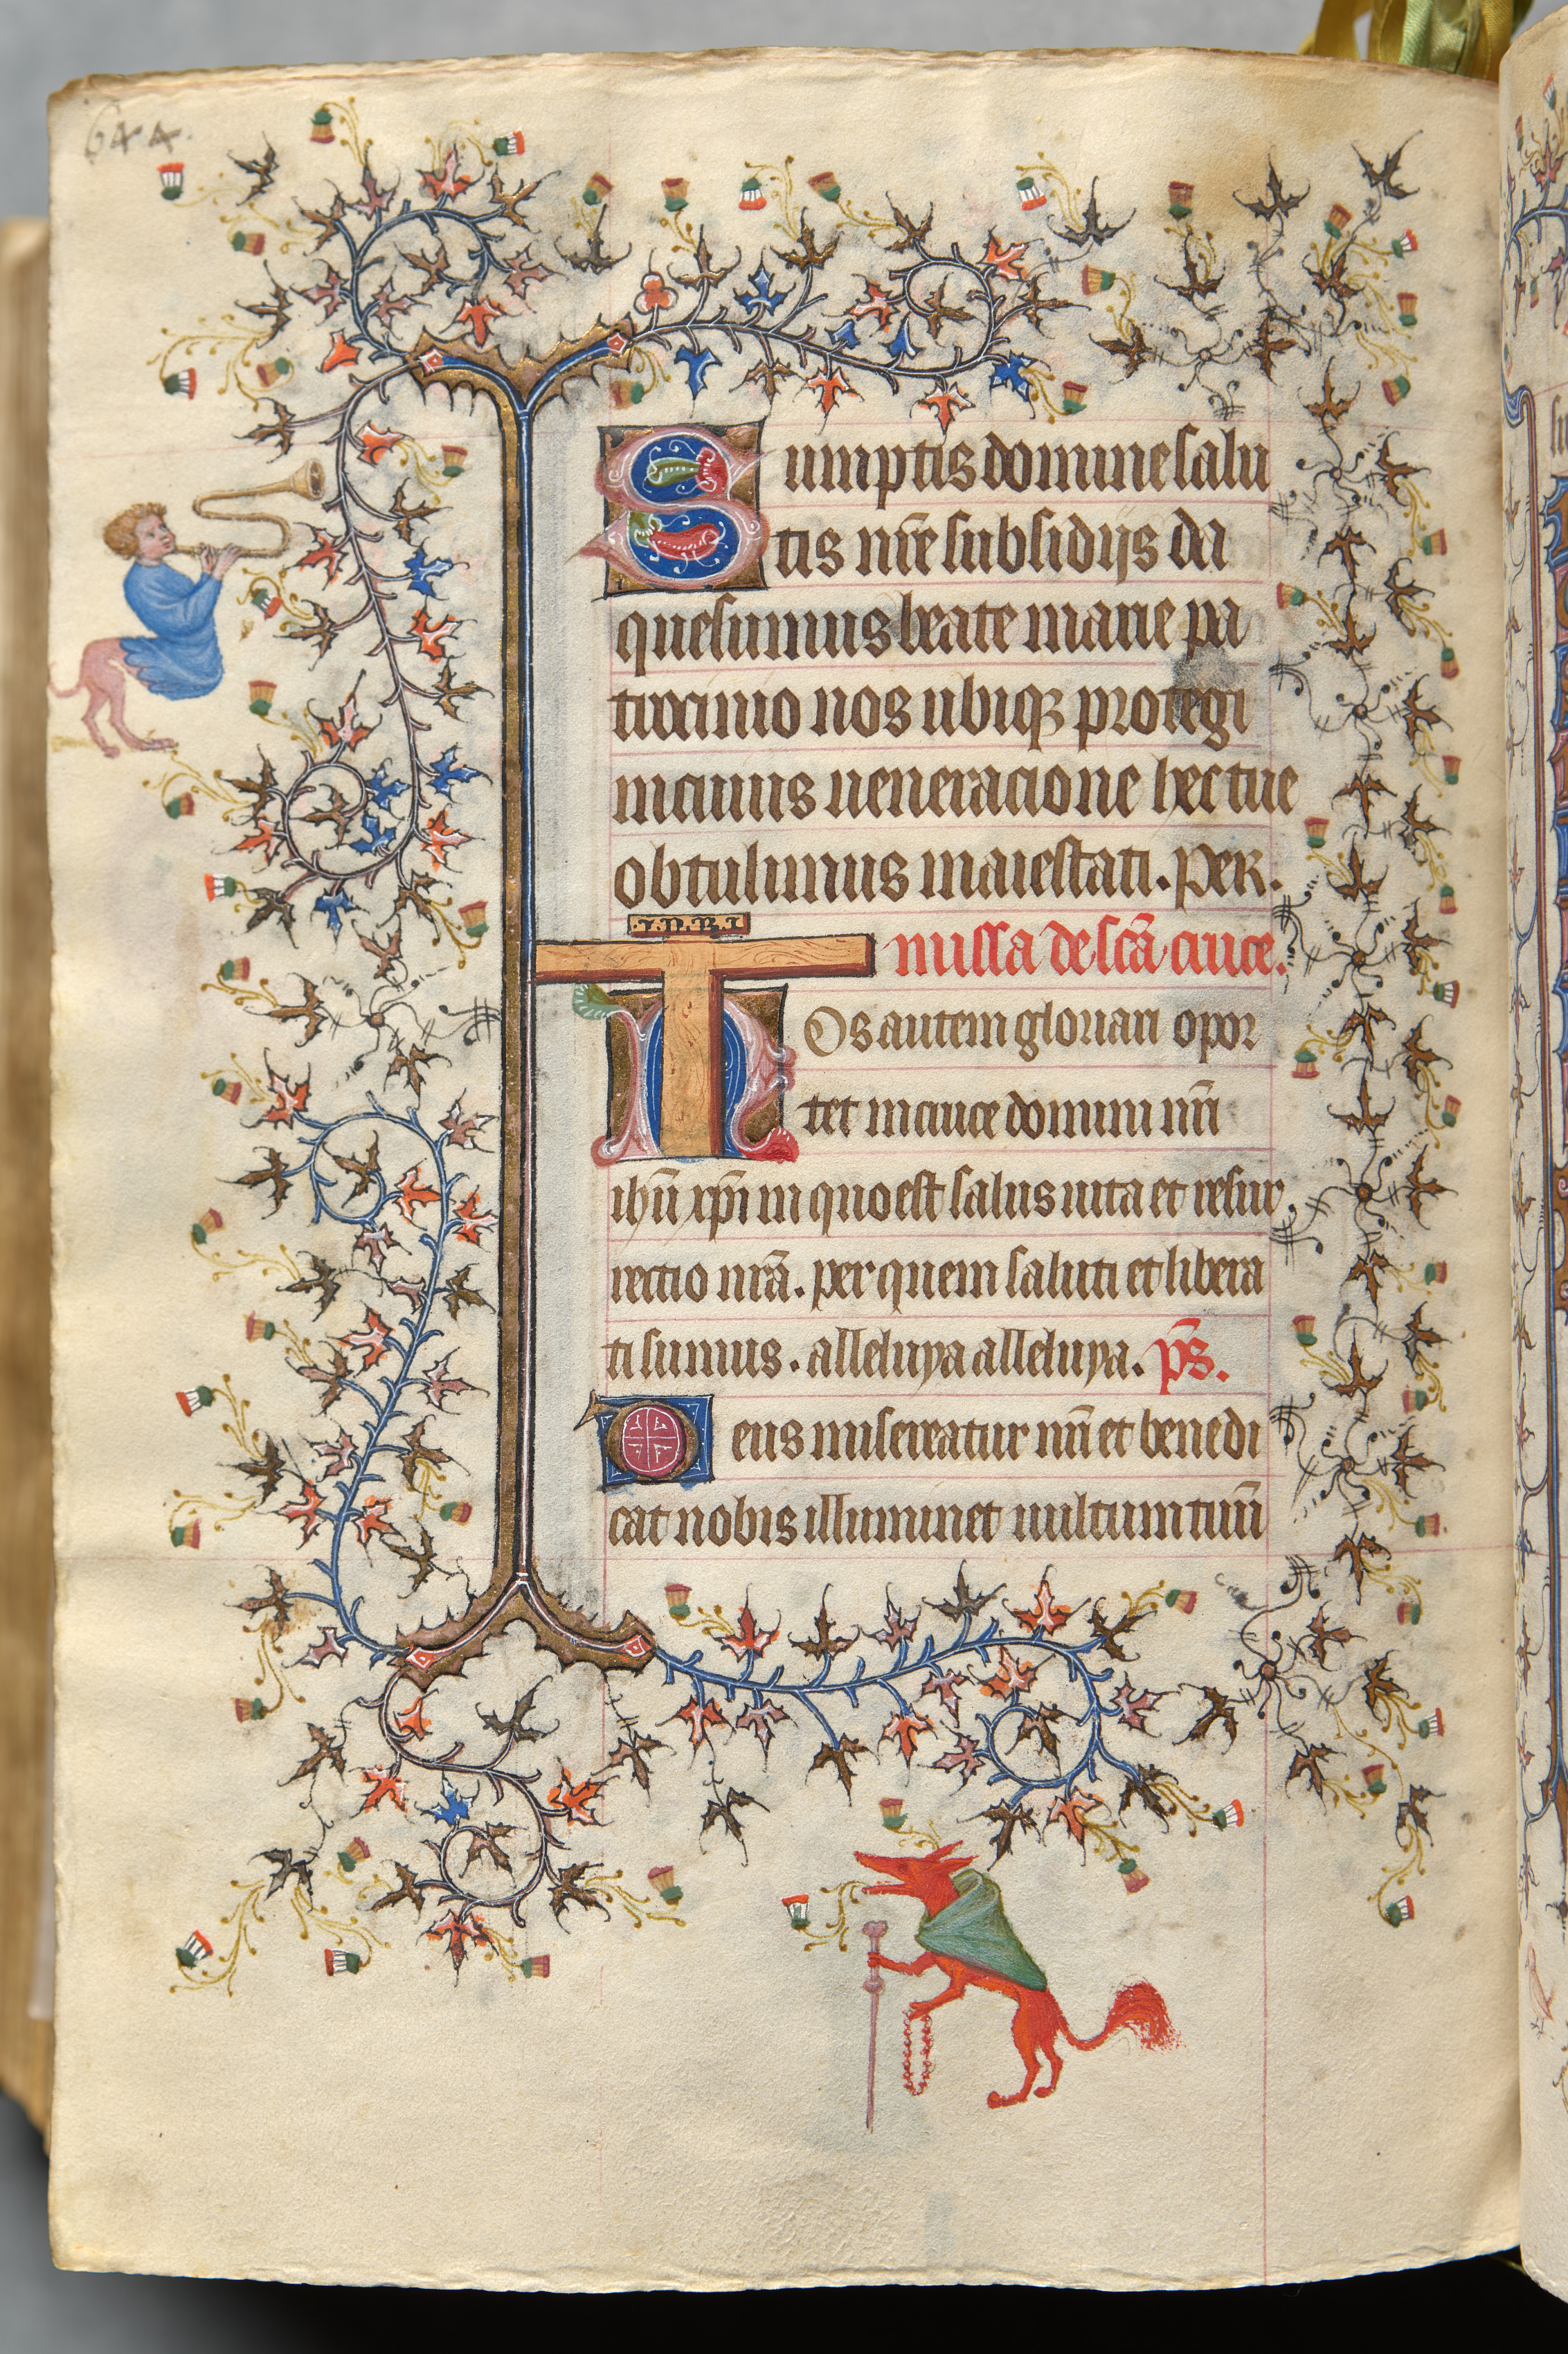 644.
Sumptis domine salu
tis nr̄e subsidijs da
quesumus beate marie pa
trocinio nos ubiqꝫ protegi
in cuius ueneracione hec tue
obtulimus maiestati. Per.
.I.N.R.I
missa de sc̄a cruce.
Nos autem gloriari opor
tet in cruce domini nr̄i
ih̄u xp̄i in quo est salus uita et resur
rectio nr̄a. per quem saluti et libera
ti sumus. alleluya alleluya. p̄s.
Deus misereatur nr̄i et benedi
cat nobis illuminet uultum tuū